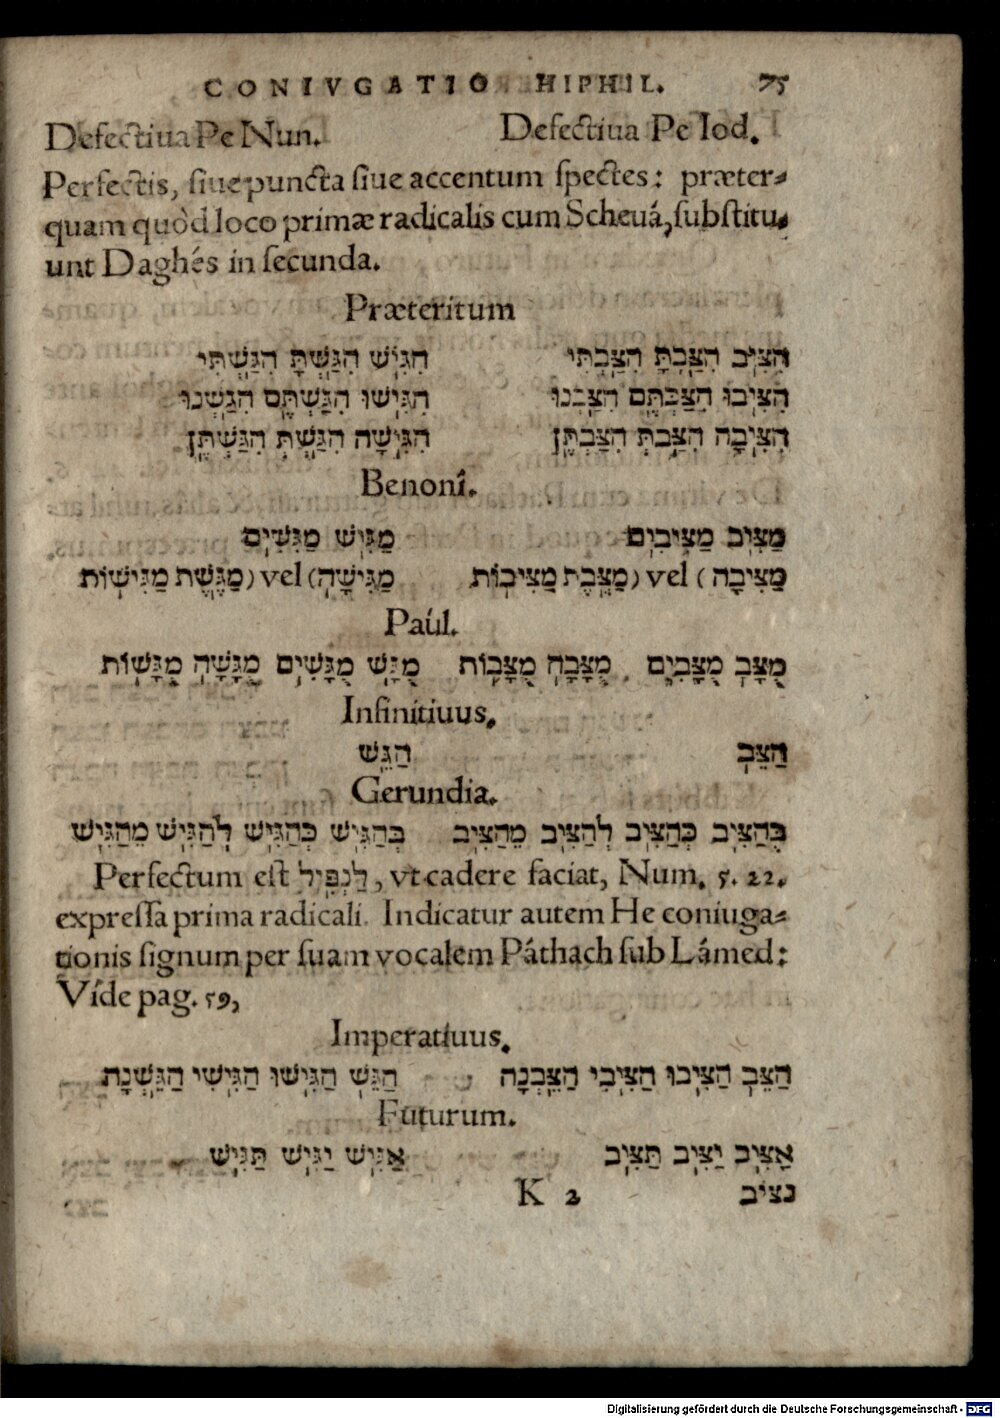 CONIVGATIO HIPHIL. 75
Defectiua Pe Nun. Defectiua Pe Iod.
Perfectis, ſiue puncta ſiue accentum ſpectes: præter-
quam quòd loco primæ radicalis cum Scheuá, ſubſtitu-
unt Daghés in ſecunda.
Præteritum
הִצִּיב הִצַּבְתָּ הִצַּבְתִּי הִגִּישׁ הִגַּשְׁתָּ הִגַּשְׁתִּי
הִצִּיבוּ הִצַּבְתֶּם הִצַּבְנוּ הִגִּישׁוּ הִגַּשְׁתֶּם הִגַּשְׁנוּ
הִצִּיבָה הִצַּבְתְּ הִצַּבְתֶּן הִגִּישָׁה הִגַּשְׁתְּ הִגַּשְׁתֶּן
Benonî.
מַצִּיב מַצִּיבִים מַגִּישׁ מַגִּשִׁים
מַצִּיבָה (vel מַצֶּבֶת) מַצִּיבוֹת מַגִּישָׁה (vel מַגֶּשֶׁת) מַגִּישׁוֹת
Paúl.
מֻצָּב מֻצָּבִים מֻצָּבָה מֻצָּבוֹת מֻגָּשׁ מֻגָּשִׁים מֻגָּשָׁה מֻגָּשׁוֹת
Infinitiuus.
הַצֵּב הַגֵּשׁ
Gerundia.
בְּהַצִּיב כְּהַצִּיב לְהַצִּיב מֵהַצִּיב בְּהַגִּישׁ כְּהַגִּישׁ לְהַגִּישׁ מֵהַגִּישׁ
Perfectum eſt לַנְפִּיל, vt cadere faciat, Num. 5. 22.
expreſſa prima radicali. Indicatur autem He coniuga-
tionis ſignum per ſuam vocalem Páthach ſub Lámed:
Víde pag. 59,
Imperatiuus.
הַצֵּב הַצִּיבוּ הַצִּיבִי הַצֵּבְנָה הַגֵּשׁ הַגִּישׁוּ הַגִּישִׁי הַגֵּשְׁנָה
Futurum.
אַצִּיב יַצִּיב תַּצִּיב אַגִּישׁ יַגִּישׁ תַּגִּישׁ
K 2 נציב
Digitalisierung gefördert durch die Deutsche Forschungsgemeinschaft - DFG